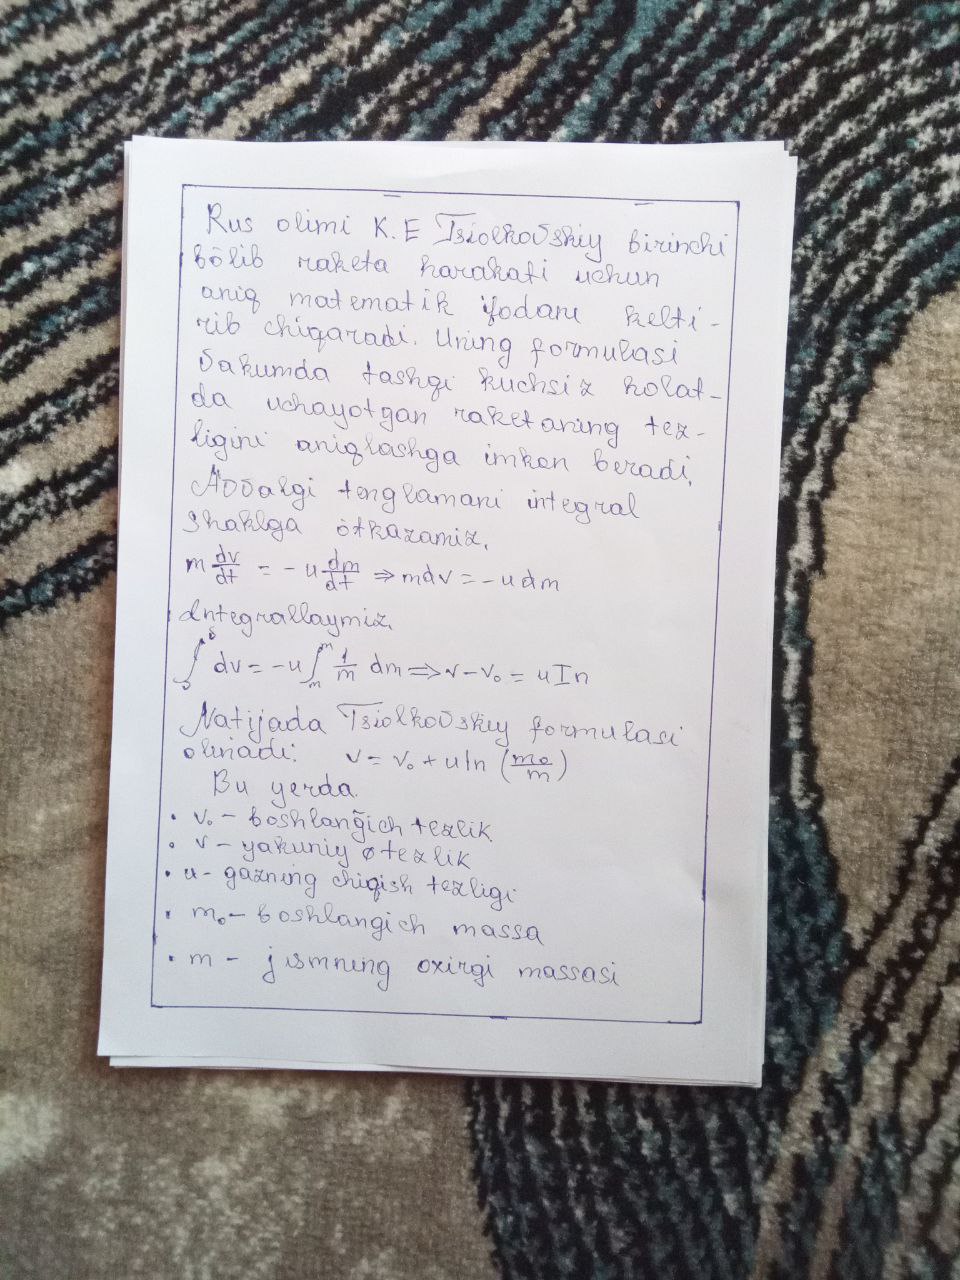 Rus olimi K.E Tsiolkovskiy birinchi
bõlib raketa harakati uchun
aniq matematik ifodani kelti-
rib chiqaradi. Uning formulasi
vakumda tashqi kuchsiz holat-
da uchayotgan raketaning tez-
ligini aniqlashga imkon beradi.
Avvalgi tenglamani integral
shaklga õtkazamiz.
m dv/dt = -u dm/dt ⇒ mdv = -u dm
Integrallaymiz.
∫ dv = -u ∫ 1/m dm ⇒ v-v₀ = u In
Natijada Tsiolkovskiy formulasi
olinadi: v = v₀ + u ln (m₀/m)
Bu yerda.
• v₀ - boshlang̃ich tezlik
• v - yakuniy tezlik
• u - gazning chiqish tezligi
• m₀ - boshlangich massa
• m - jismning oxirgi massasi